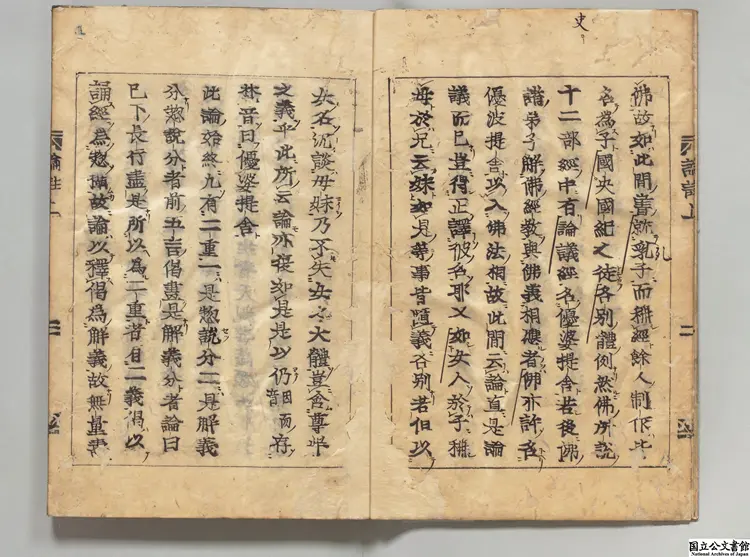 史
佛故如此間書就乳子而稱經餘人制作皆
孔
名為子國史國紀之徒各別體例然佛所說
十二部經中有論議經名優婆提舍若復佛
諸弟子解佛經教與佛義相應者佛亦許名
優波提舍以入佛法相故此間云論直是論
議而已豈得正譯彼名耶又如女人於子稱
母於兄云妹如是等事皆隨義各別若但以
女名汎談母妹乃不失女之大體豈含尊卑
之義乎此所云論亦復如是是以仍因而存
梵音曰優婆提舍
此論始終凡有二重一是惣說分二是解義
分惣說分者前五言偈盡是解義分者論曰
已下長行盡是所以為二重者自二義偈以
誦經為惣攝故論以釋偈為解義故無量壽
論註上
二
国立公文書館
National Archives of Japan